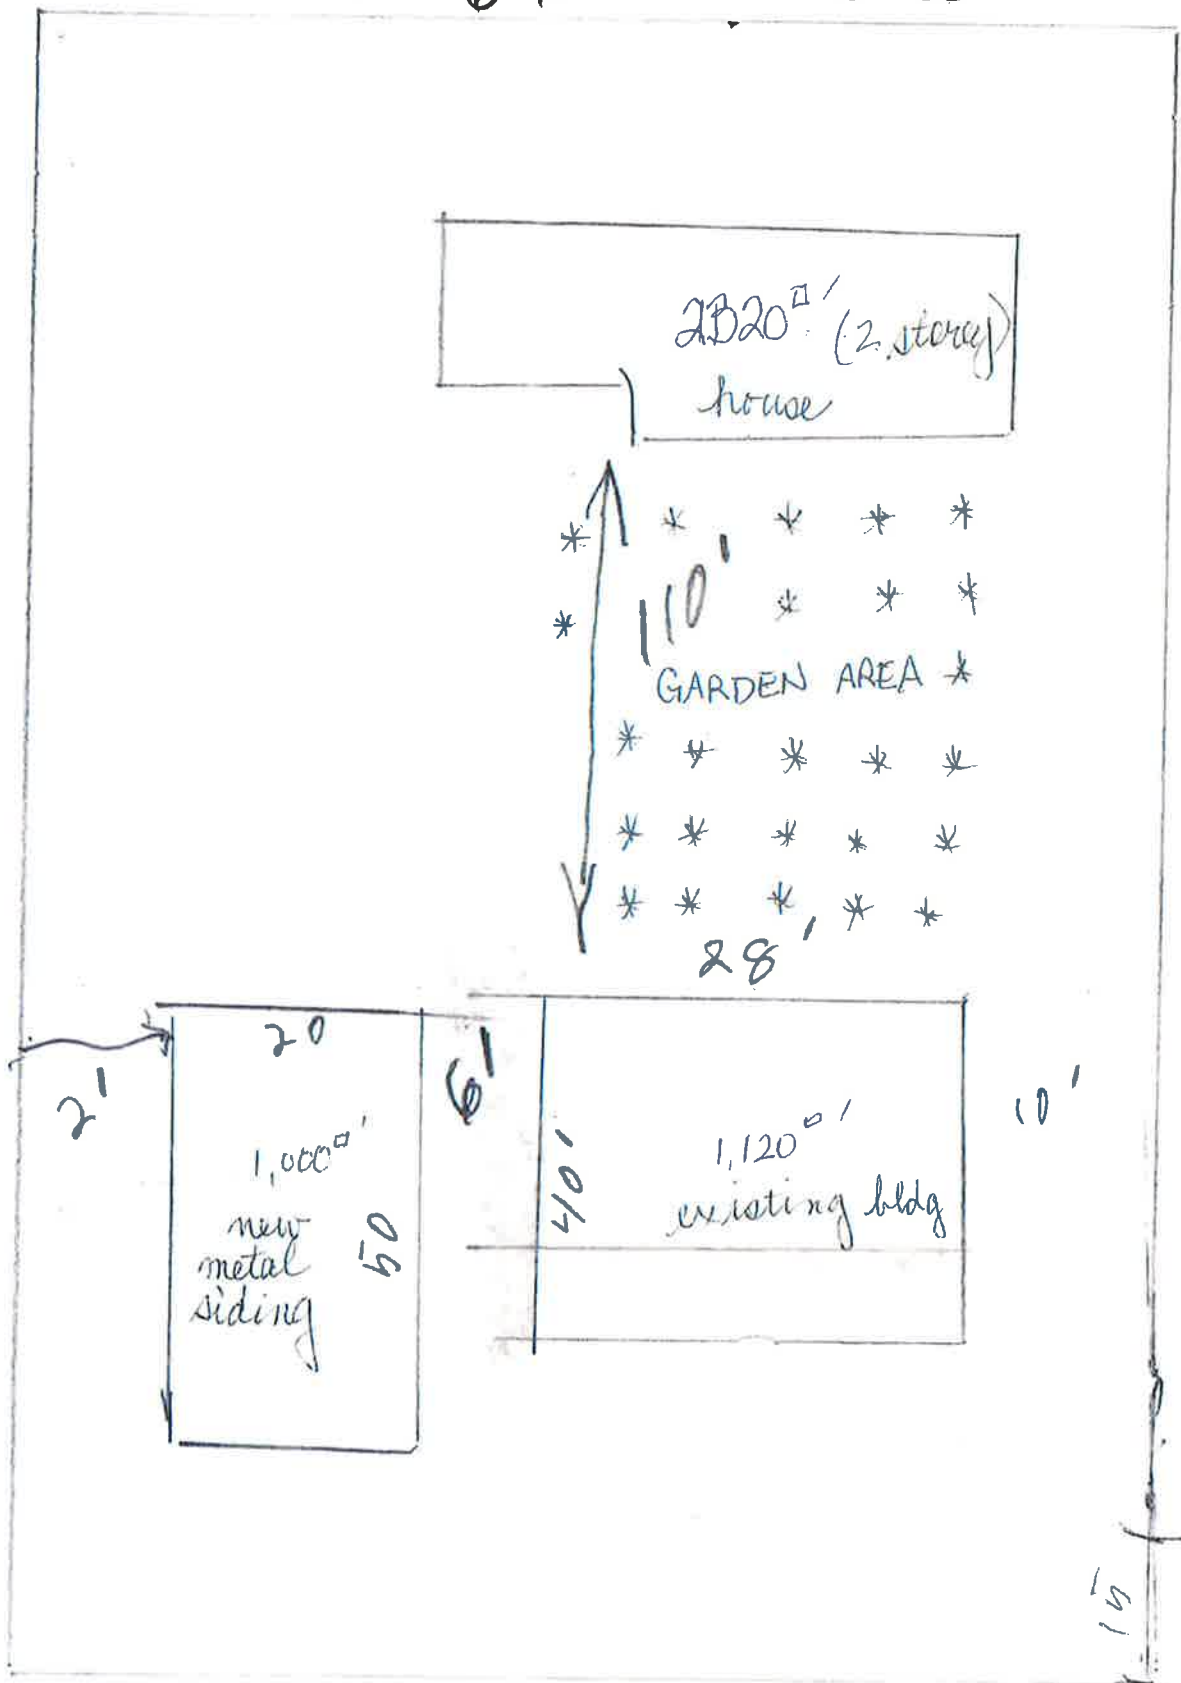 2820□' (2 story)
house
110'
GARDEN AREA
28'
2'
20
6'
10'
1,000□'
new
metal
siding
50
40'
1,120□'
existing bldg
15